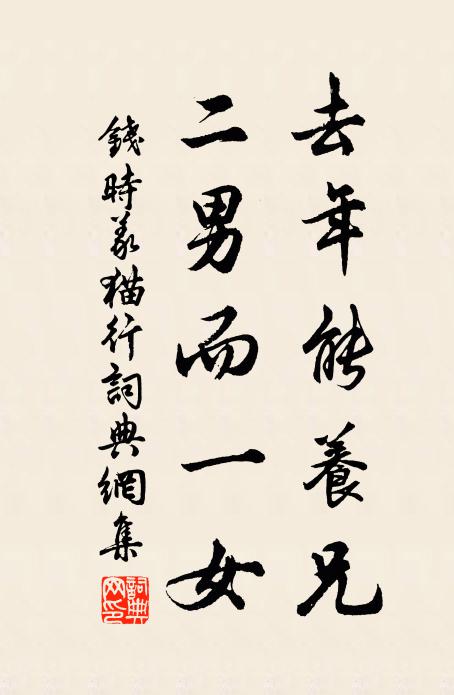 去年能養兄
二男而一女
錢時義猫行詞典網集
詞典网印